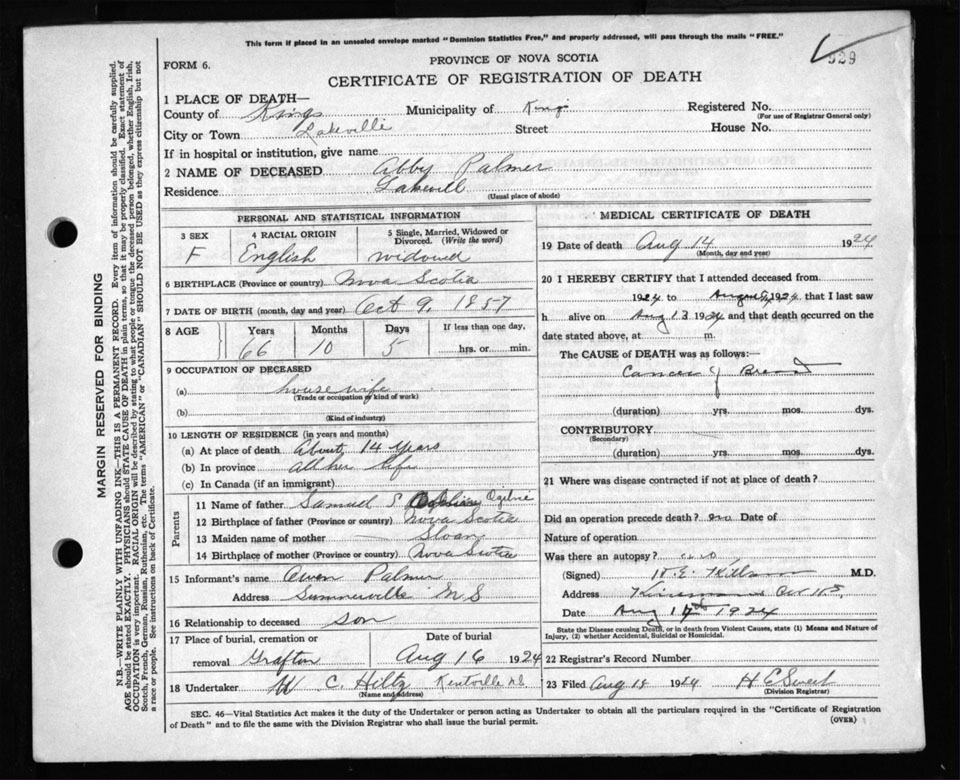 This form if placed in an unsealed envelope marked "Dominion Statistics Free," and properly addressed, will pass through the mails "FREE."
529
FORM 6.
PROVINCE OF NOVA SCOTIA
CERTIFICATE OF REGISTRATION OF DEATH
MARGIN RESERVED FOR BINDING
N.B.—WRITE PLAINLY WITH UNFADING INK—THIS IS A PERMANENT RECORD. Every item of information should be carefully supplied.
AGE should be stated EXACTLY. PHYSICIANS should STATE CAUSE OF DEATH in plain terms, so that it may be properly classified. Exact statement of
OCCUPATION is very important. RACIAL ORIGIN will be described by stating to what people or tongue the deceased person belonged, whether English, Irish,
Scotch, French, German, Russian, Ruthenian, etc. The terms "AMERICAN" or "CANADIAN" SHOULD NOT BE USED as they express citizenship but not
a race or people. See instructions on back of Certificate.
1 PLACE OF DEATH—
County of Kings Municipality of Kings Registered No.
(For use of Registrar General only)
City or Town Lakeville Street House No.
If in hospital or institution, give name
2 NAME OF DECEASED Abby Palmer
Residence Lakevill
(Usual place of abode)
PERSONAL AND STATISTICAL INFORMATION
3 SEX F
4 RACIAL ORIGIN English
5 Single, Married, Widowed or Divorced. (Write the word) widowed
6 BIRTHPLACE (Province or country) Nova Scotia
7 DATE OF BIRTH (month, day and year) Oct 9, 1857
8 AGE Years Months Days If less than one day,
66 10 5 hrs. or min.
9 OCCUPATION OF DECEASED
(a) house wife
(Trade or occupation or kind of work)
(b)
(Kind of industry)
10 LENGTH OF RESIDENCE (in years and months)
(a) At place of death About 14 years
(b) In province all her life
(c) In Canada (if an immigrant)
Parents
11 Name of father Samuel S Ogilvie
12 Birthplace of father (Province or country) Nova Scotia
13 Maiden name of mother Sloan
14 Birthplace of mother (Province or country) Nova Scotia
15 Informant's name Owen Palmer
Address Summerville N S
16 Relationship to deceased son
17 Place of burial, cremation or Date of burial
removal Grafton Aug 16 1924
18 Undertaker W C. Hiltz Kentville NS
(Name and address)
MEDICAL CERTIFICATE OF DEATH
19 Date of death Aug 14 1924
(Month, day and year)
20 I HEREBY CERTIFY that I attended deceased from
1924 to August 1924 that I last saw
h alive on Aug 13 1924 and that death occurred on
date stated above, at m.
The CAUSE of DEATH was as follows:
Cancer of Breast
(duration) yrs. mos. dys.
CONTRIBUTORY
(Secondary)
(duration) yrs. mos. dys.
21 Where was disease contracted if not at place of death?
Did an operation precede death? no Date of
Nature of operation
Was there an autopsy? no
(Signed) M.D.
Address
Date Aug 1924
State the Disease causing Death, or in death from Violent Causes, state (1) Means and Nature of
Injury, (2) whether Accidental, Suicidal or Homicidal.
22 Registrar's Record Number
23 Filed Aug 18 1924 H C Sweet
(Division Registrar)
SEC. 46—Vital Statistics Act makes it the duty of the Undertaker or person acting as Undertaker to obtain all the particulars required in the "Certificate of Registration
of Death" and to file the same with the Division Registrar who shall issue the burial permit.
(OVER)